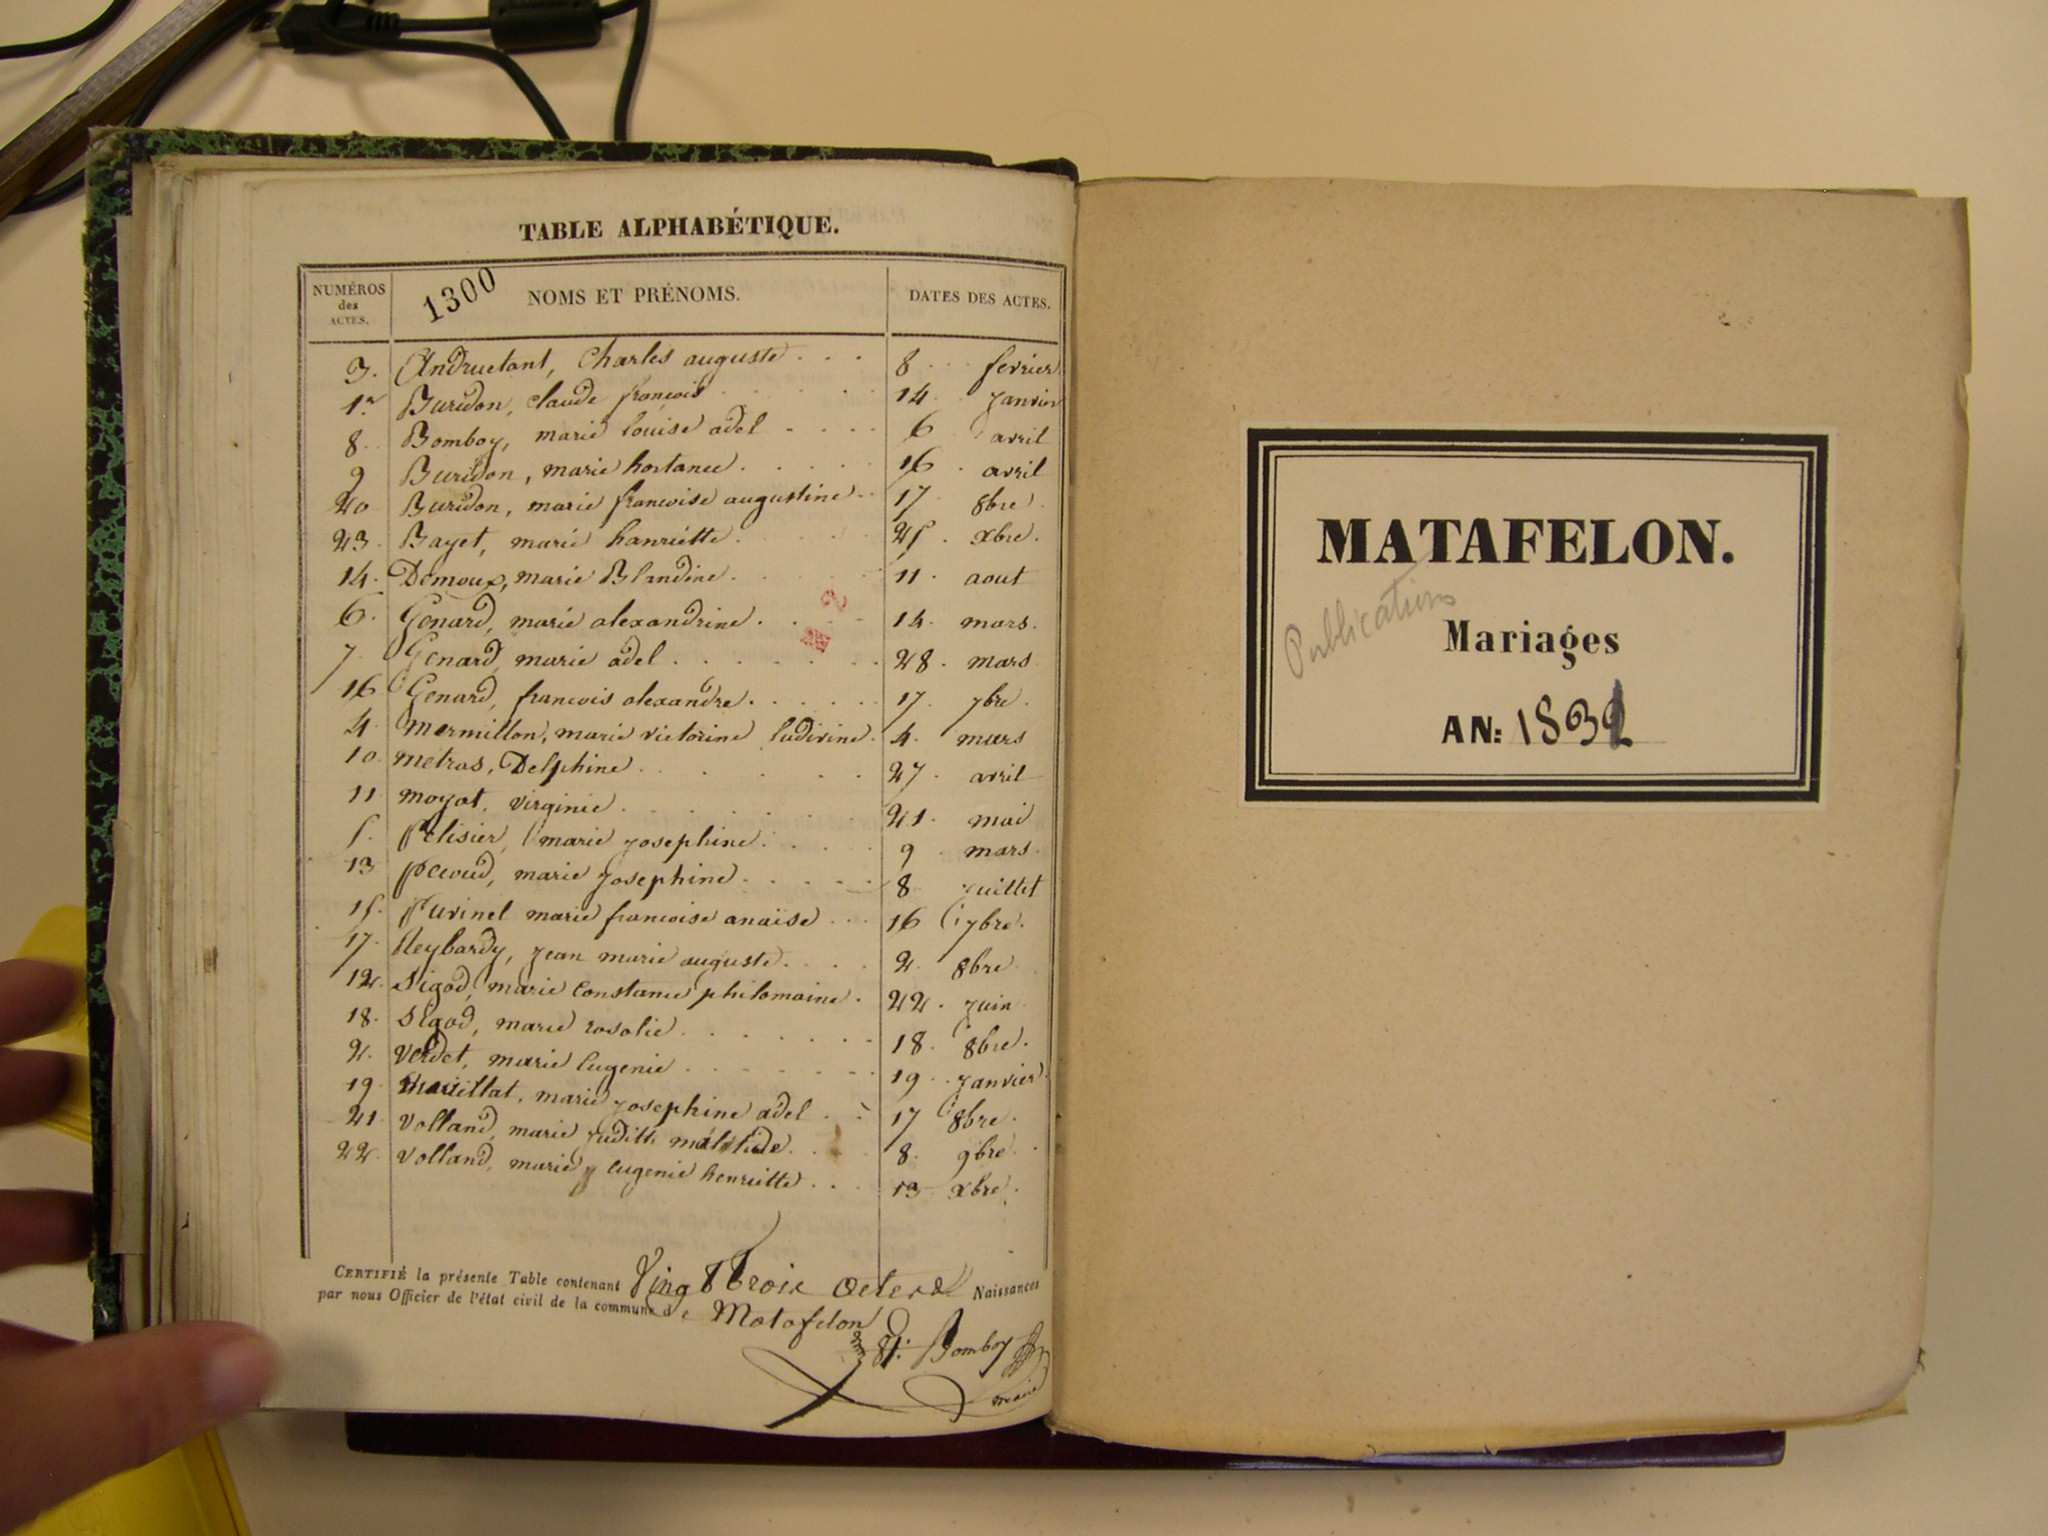 TABLE ALPHABÉTIQUE.
NUMÉROS des ACTES.
1300
NOMS ET PRÉNOMS.
DATES DES ACTES.
3. Andruetant, Charles auguste 8 fevrier
1er Buridon, claude françois 14 janvier
8. Bomboy, marie louise adel 6 avril
9 Buridon, marie hortance 16 avril
20 Buridon, marie francoise augustine 17 8bre
23. Bayet, marie hanriette 25 xbre.
14. Demoux, marie Blandine 11 aout
6. Genard, marie alexandrine 14 mars.
7. Genard, marie adel 28 mars
16 Genard, francois alexandre 17 7bre.
4. Mermillon, marie victorine ludivine 4 mars
10 metras, Delphine 27 avril
11 moyat, virginie 21 mai
5. Pelisier, marie josephine 9 mars
13 pecoud, marie josephine 8 juillet
15. Purinel marie francoise anaïse 16 7bre.
17. Reybardy, jean marie auguste 2 8bre
12. Sigod, marie constance philomaine 22 juin
18. Sigod, marie rosalie 18 8bre.
2. Verdet, marie Eugenie 19 janvier
19. Mauillat, marie josephine adel 17 8bre
21 Volland, marie judith matilide 8. 9bre
22. Volland, marie Eugenie henriette 13 xbre.
CERTIFIÉ la présente Table contenant Vingt trois actes de Naissances
par nous Officier de l'état civil de la commune de Matafelon
Bomboy
maire
MATAFELON.
Publications
Mariages
AN: 1832